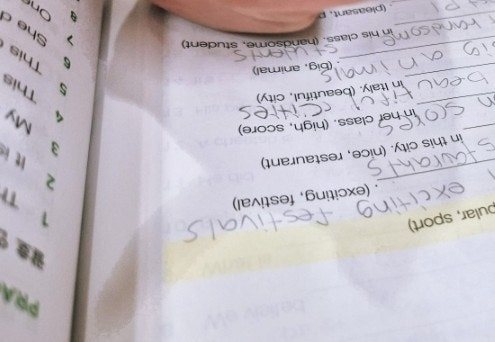 pular, sport)
exciting festivals
. (exciting, festival)
in this city. (nice, restaurant)
scores
in her class. (high, score)
beautiful cities
in Italy. (beautiful, city)
animals
(big, animal)
handsome
students
in his class. (handsome, student)
(pleasant, p
PRA
1 Th
2 It is
3 My
4 This
5 This
6 She d
7 One
8